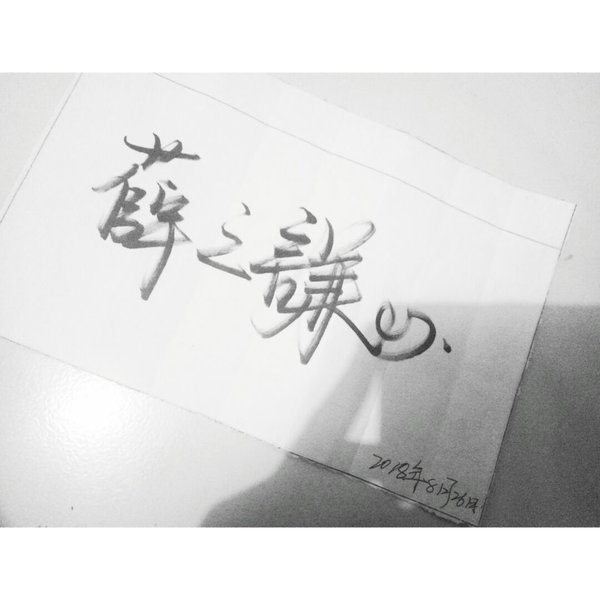 薛之謙
2018年8月26日